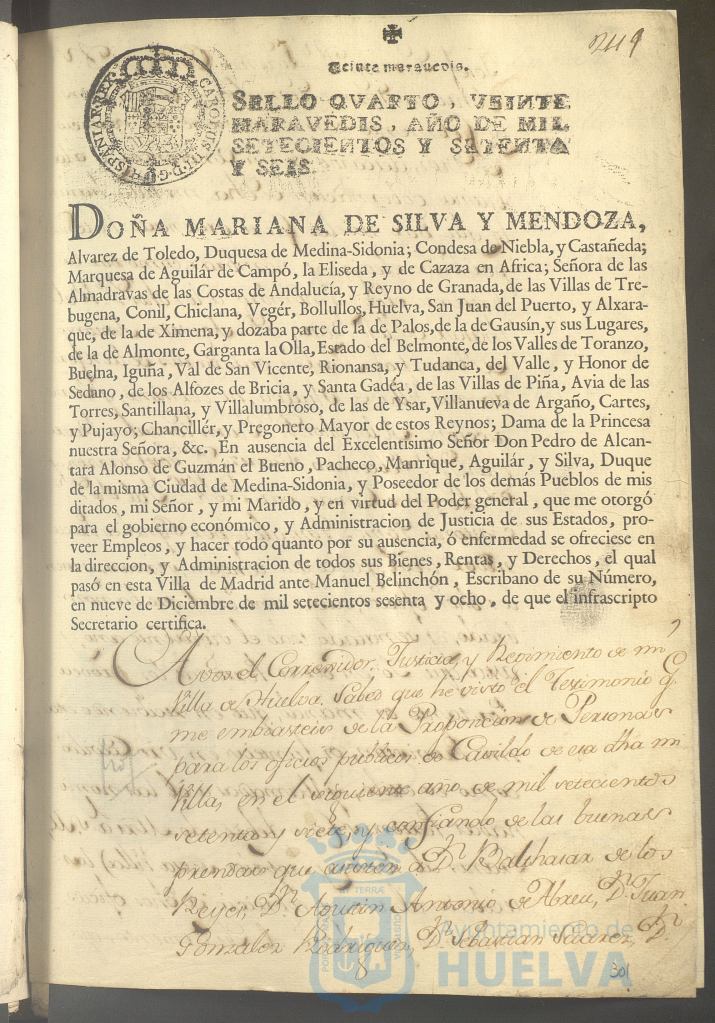 2119
Veinte maravedis.
SELLO QVARTO, VEINTE
MARAVEDIS, AÑO DE MIL
SETECIENTOS Y SETENTA
Y SEIS.
CAROLUS III. D. G. HISPANIAR. REX
DOÑA MARIANA DE SILVA Y MENDOZA,
Alvarez de Toledo, Duquesa de Medina-Sidonia; Condesa de Niebla, y Castañeda;
Marquesa de Aguilár de Campó, la Eliseda, y de Cazaza en Africa; Señora de las
Almadravas de las Costas de Andalucía, y Reyno de Granada, de las Villas de Tre-
bugena, Conil, Chiclana, Vegér, Bollullos, Huelva, San Juan del Puerto, y Alxara-
que, de la de Ximena, y dozaba parte de la de Palos, de la de Gausín, y sus Lugares,
de la de Almonte, Garganta la Olla, Estado del Belmonte, de los Valles de Toranzo,
Buelna, Iguña, Val de San Vicente, Rionansa, y Tudanca, del Valle, y Honor de
Sedano, de los Alfozes de Bricia, y Santa Gadéa, de las Villas de Piña, Avia de las
Torres, Santillana, y Villalumbroso, de las de Ysar, Villanueva de Argaño, Cartes,
y Pujayo; Chancillér, y Pregonero Mayor de estos Reynos; Dama de la Princesa
nuestra Señora, &c. En ausencia del Excelentisimo Señor Don Pedro de Alcan-
tara Alonso de Guzmán el Bueno, Pacheco, Manrique, Aguilár, y Silva, Duque
de la misma Ciudad de Medina-Sidonia, y Poseedor de los demás Pueblos de mis
ditados, mi Señor, y mi Marido, y en virtud del Poder general, que me otorgó
para el gobierno económico, y Administracion de Justicia de sus Estados, pro-
veer Empleos, y hacer todo quanto por su ausencia, ó enfermedad se ofreciese en
la direccion, y Administracion de todos sus Bienes, Rentas, y Derechos, el qual
pasó en esta Villa de Madrid ante Manuel Belinchón, Escribano de su Número,
en nueve de Diciembre de mil setecientos sesenta y ocho, de que el infrascripto
Secretario certifica.
A vos el Correxidor, Justicia, y Regimiento de mi
Villa de Huelva. Sabed que he visto el Testimonio q.
me embiasteis de la Proporcion de Personas
para los oficios publicos de Cavildo de esa dha mi
Villa, en el siguiente año de mil setecientos
setenta y siete, y confiando de las buenas
prendas que asisten á Dn. Balthasar de los
Reyes, Dn. Agustin Antonio de Abreu, Dn. Juan
Gonzalez Rodriguez, Dn. Sebastian Suarez, Dn.
Ayuntamiento de
HUELVA
301